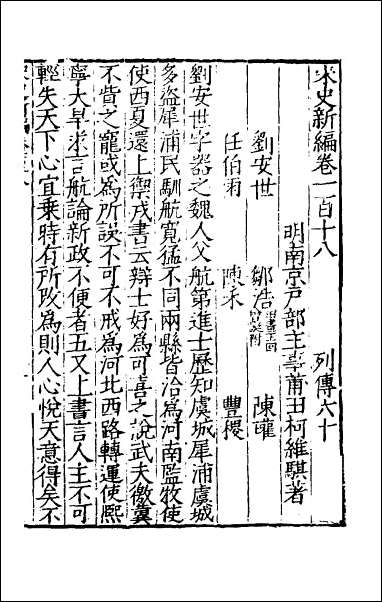 宋史新編卷一百十八 列傳六十
明南京戸部主事莆田柯維騏著
劉安世 鄒浩 陳瓘
任伯雨 陳禾 豐稷
劉安世字器之魏人父航第進士歷知虞城犀浦虞城
多盜犀浦民馴航寬猛不同兩縣皆治為河南監牧使
使西夏還上禦戎書云辯士好為可喜之說武夫徼冀
不貲之寵或為所誤不可不戒為河北西路轉運使熙
寧大旱求言航論新政不便者五又上書言人主不可
輕失天下心宜乗時有所改為則人心悅天意得矣不